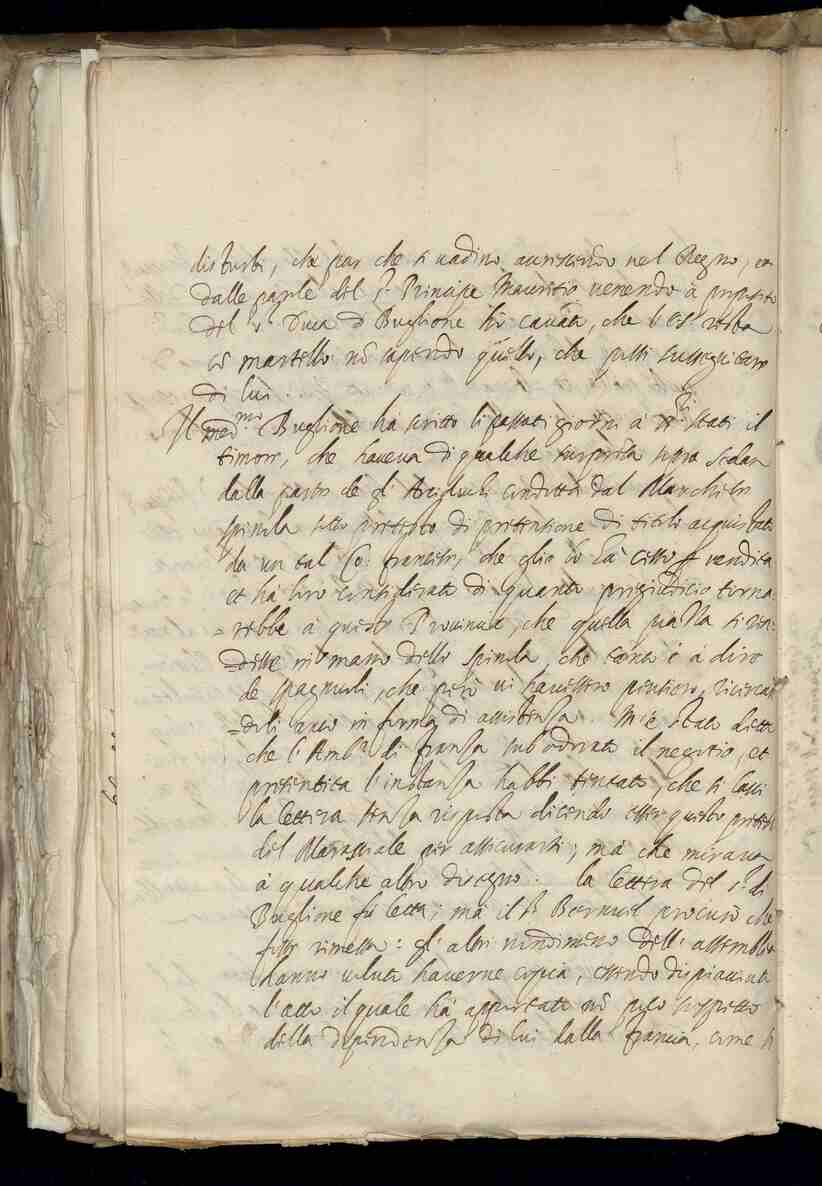 disturbi, che par che si vadino accrescendo nel Regno, et
dalle parole del s.r Principe Mauritio venendo à proposito
del s.r Duca di Buglione hò cavato, che l'Ecc.a resta
cõ martello nõ sapendo q̃llo, che possi sutteguitare
di lui.
Il med.mo Buglione hà scritto li passati giorni à q.sti stati il
timore, che haveva di qualche sorpresa sopra Sedan
dalla parte de gl'Arciduchi condotta dal Marchese
Spinola sotto pretesto di pretensione di titolo acquistato
da un tal Co: francese, che glie lo hà
et hà loro considerato di quanto pregiuditio torna
=rebbe à queste Provincie, che quella piazza si ren
=desse in mano dello Spinola, che tanto è à dire
de spagnuoli, che però vi havessero pensiero, ricercan
=doli anco in forma di assistenza. M'è stato detto
che l'Amb.r di franza sub'odorato il negotio, et
presentita l'instanza habbi tentato, che si lassi
la lettera senza risposta dicendo esser questo pretesto
del Maresciale per assicurarsi; mà che mirava
à qualche altro disegno. la lettera del s.r di
Buglione fù letta; mà il s.r Bernvel procurò che
fosse rimessa: gl'altri nondimeno dell'assemblea
hanno voluto haverne copia, essendo dispiaciuto
l'atto il quale hà apportato nõ poco sospetto
della dipendenza di lui dalla francia, come si